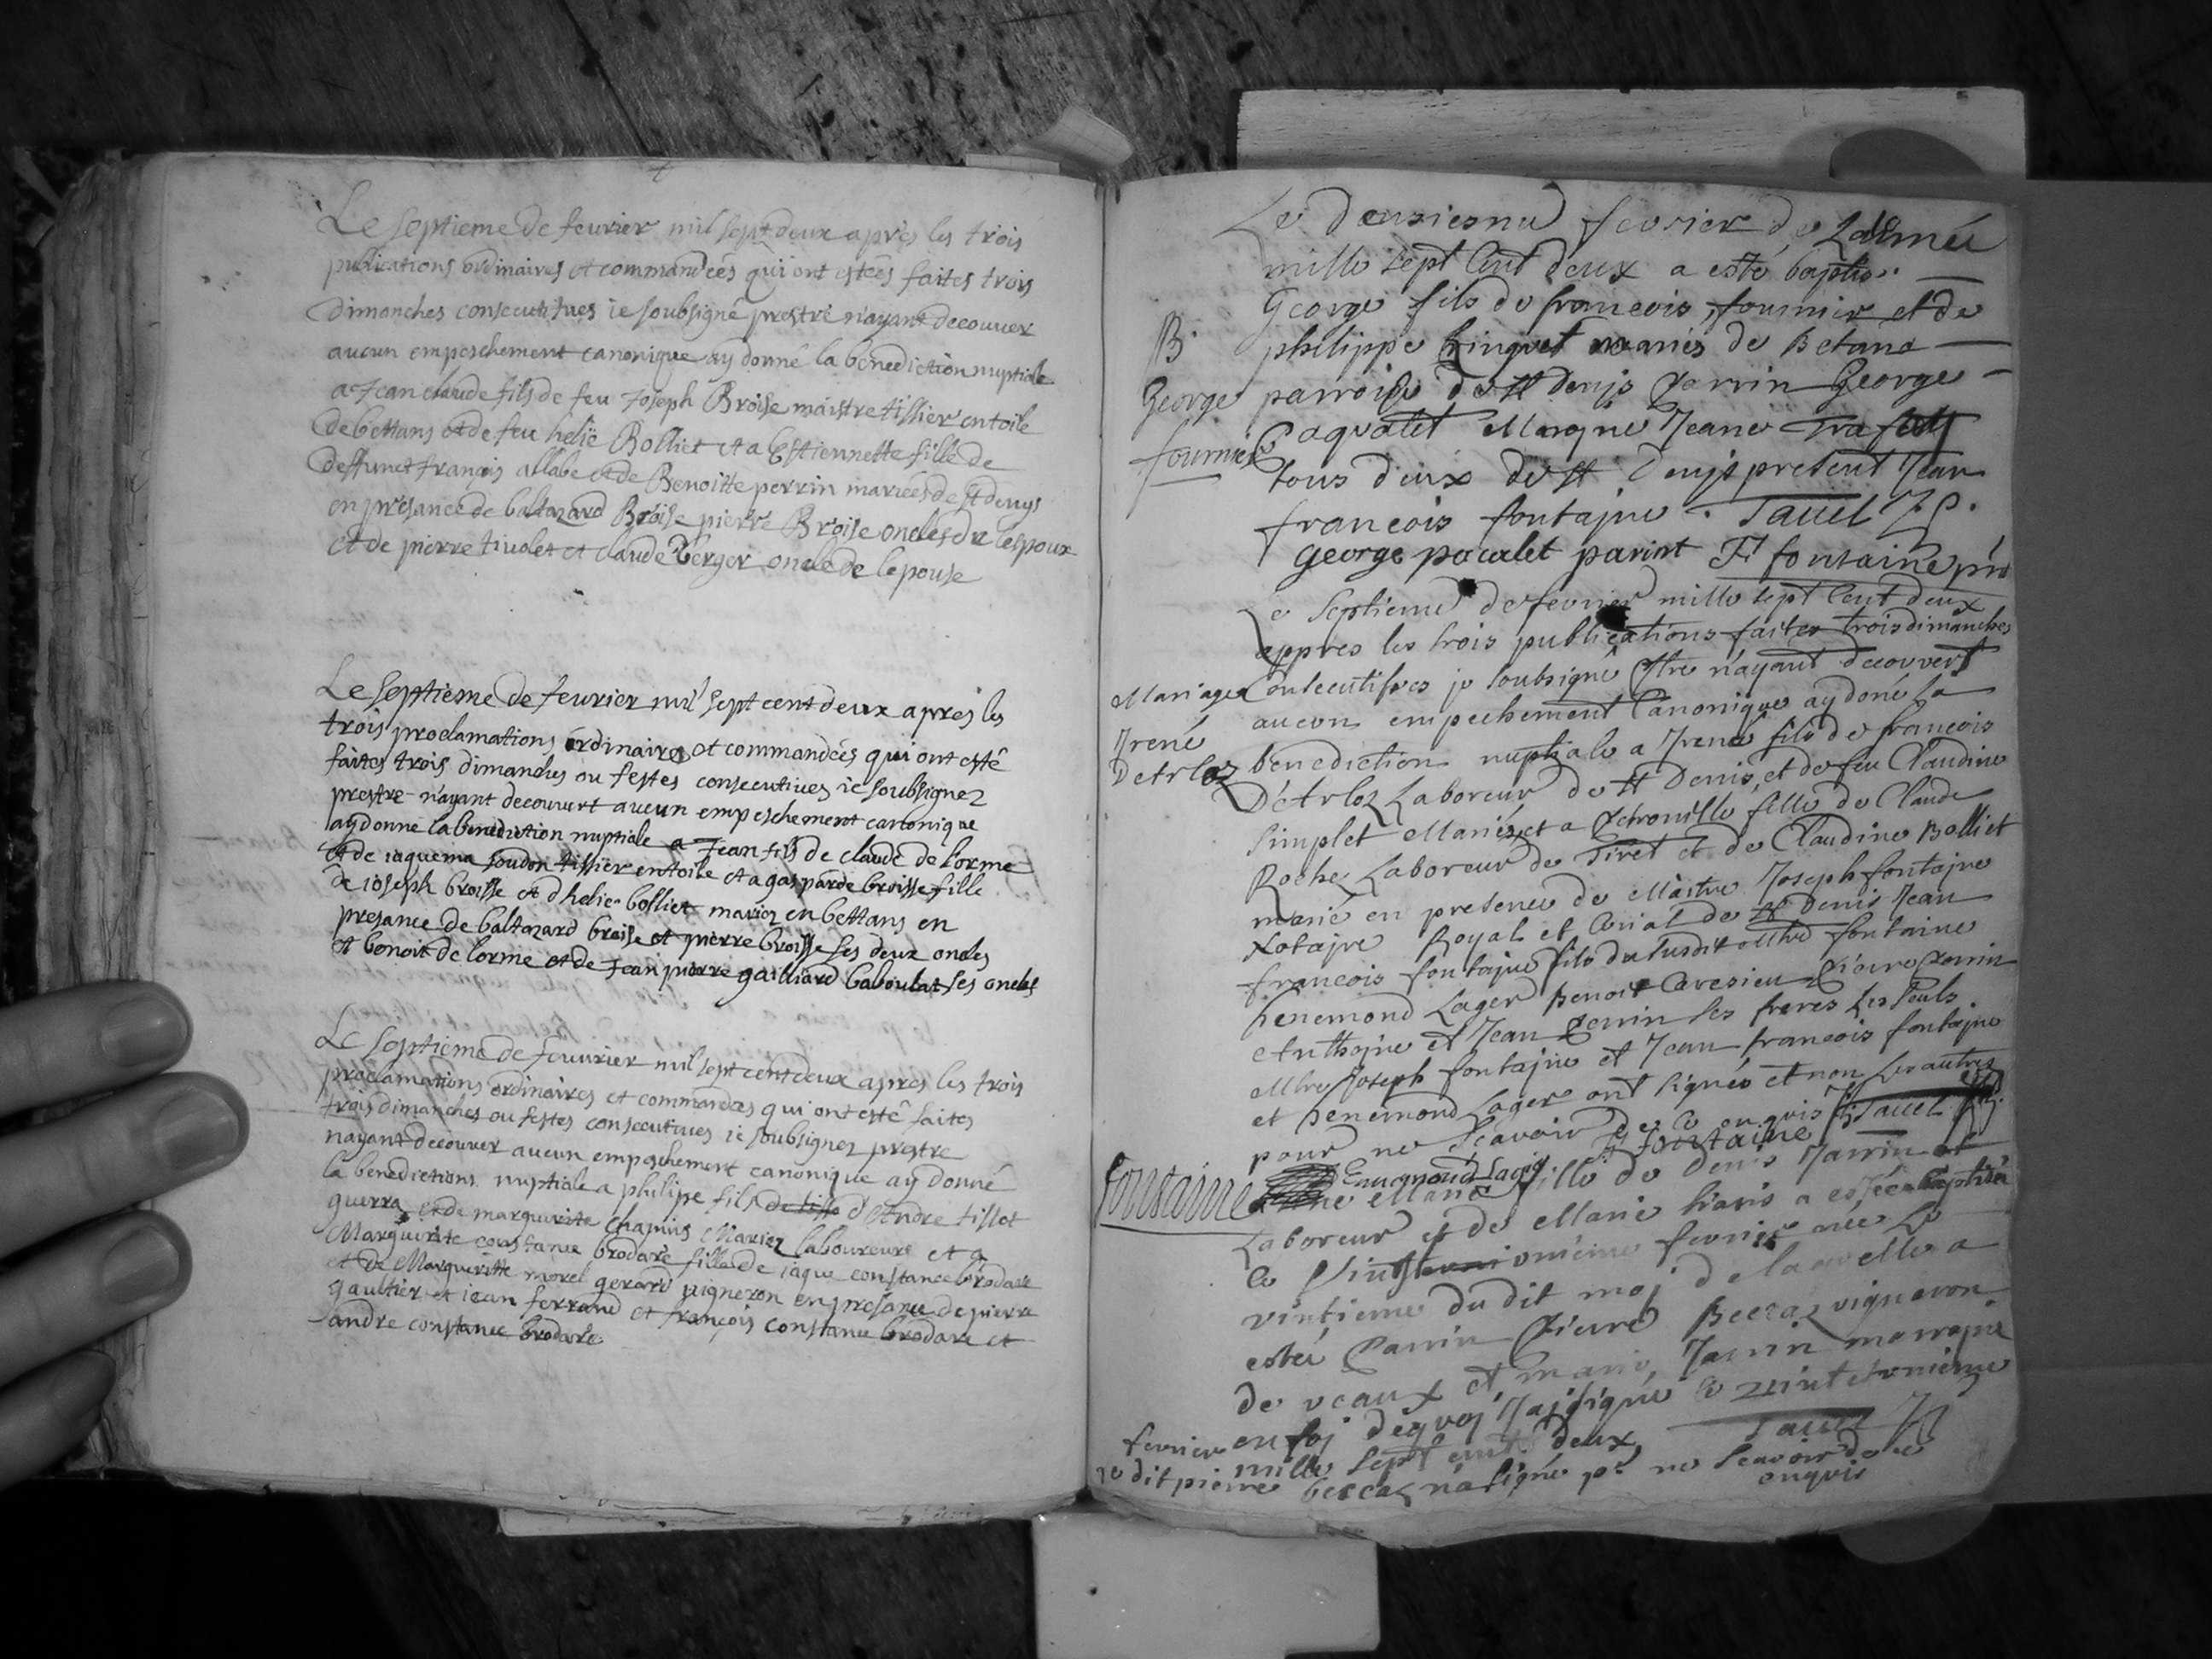 Le septieme de feurier mil sept deux après les trois
publications ordinaires et commandeés qui ont esteés faites trois
dimanches consecutives ie soubsigné prestre n'ayant decouver
aucun empeschement canonique ay donné la benediction nuptiale
a Jean claude fils de feu Joseph Broise maistre tissier en toile
de bettans et de feu helië Bolliet et a Estiennette fille de
deffunct françois allabe et de Benoitte perrin marieés de st denys
en presance de baltazard Broise pierre Broise oncles de lespoux
et de pierre tivolet et claude berger oncle de lepouse
Le septieme de feurier mil sept cent deux apres les
trois proclamations ordinaires et commandées qui ont esté
faites trois dimanches ou festes consecutives ie soubsignez
prestre n'ayant decouvert aucun empeschement canonique
ay donne la benediction nuptiale a Jean fils de claude de lorme
et de iaquema soudon tissier en toile et a gasparde broisse fille
de ioseph broisse et d helie bolliet mariez en bettans en
presance de baltazard broise et pierre broisse ses deux oncles
et benoit de lorme et de Jean pierre gailliard baboulat ses oncles
Le septieme de feuvrier mil sept cent deux apres les trois
proclamations ordinaires et commandées qui ont esté faites
trois dimanches ou festes consecutives ie soubsignez prestre
nayant decouver aucun empeschement canonique ay donné
la benedictions nuptiale a philipe fils de tisso d'Andre tissot
guerra et de marguerite chapuis Mariez laboureurs et a
Marguerite constance brodare fille de iaque constance brodare
et de Marguerite morel gerard vigneron en presance de pierre
gaultier et iean ferrand et françois constance brodare et
andre constance brodare
Le deusiesme feurier de Lannée
mille sept Cent deux a esté baptisé
George fils de francois fournier et de
B. philippe Ringuet mariés de Betans
George parroisse de st denjs parrin George
fournier Paqualet Margne Jeane
tous deux de st denjs present Jean
francois fontajne . Tavel
George pacalet parint F fontaine
Le septieme de feurier mille sept Cent deux
appres les trois publications faites trois dimanches
Mariage Consecutifves je soubsigné Ptre n'ayant decouvert
aucun empechement Canonique ay doné la
Irené benediction nuptiale a Irené fils de francois
Detrloz D'etrloz Laboreur de st Denis, et de feu Claudine
Simplet Mariés et a petronille fille de Claude
Roche Laboreur de Tiret et de Claudine Bolliet
marié en presence de Maitre Joseph fontajne
Notajre Royal et Curial de st Denis Jean
francois fontajne fils du susdit Mtre fontaine
henemond Lager Benoit Pierre perrin
Anthojne et Jean perrin les freres les seuls
Mtre Joseph fontajne et Jean francois fontajne
et henemond Lager ont signés et non Les autres
pour ne scavoir de ce enquis Tavel
fontaine Ennemond Lager F fontaine
Marie fille de Denis Janin et
Laboreur et de Marie a estée baptisée
le Vint onieme feurier née Le
vintieme du dit moj de laquelle a
esté Parrin Pierre Beccaz vigneron
de veaux et marie Janin marrajne
en foj dequoj J'aj signé le vint et unieme
feurier mille sept cent deux Tavel
le dit pierre beccaz n'a signé pr ne scavoir de ce
enquis